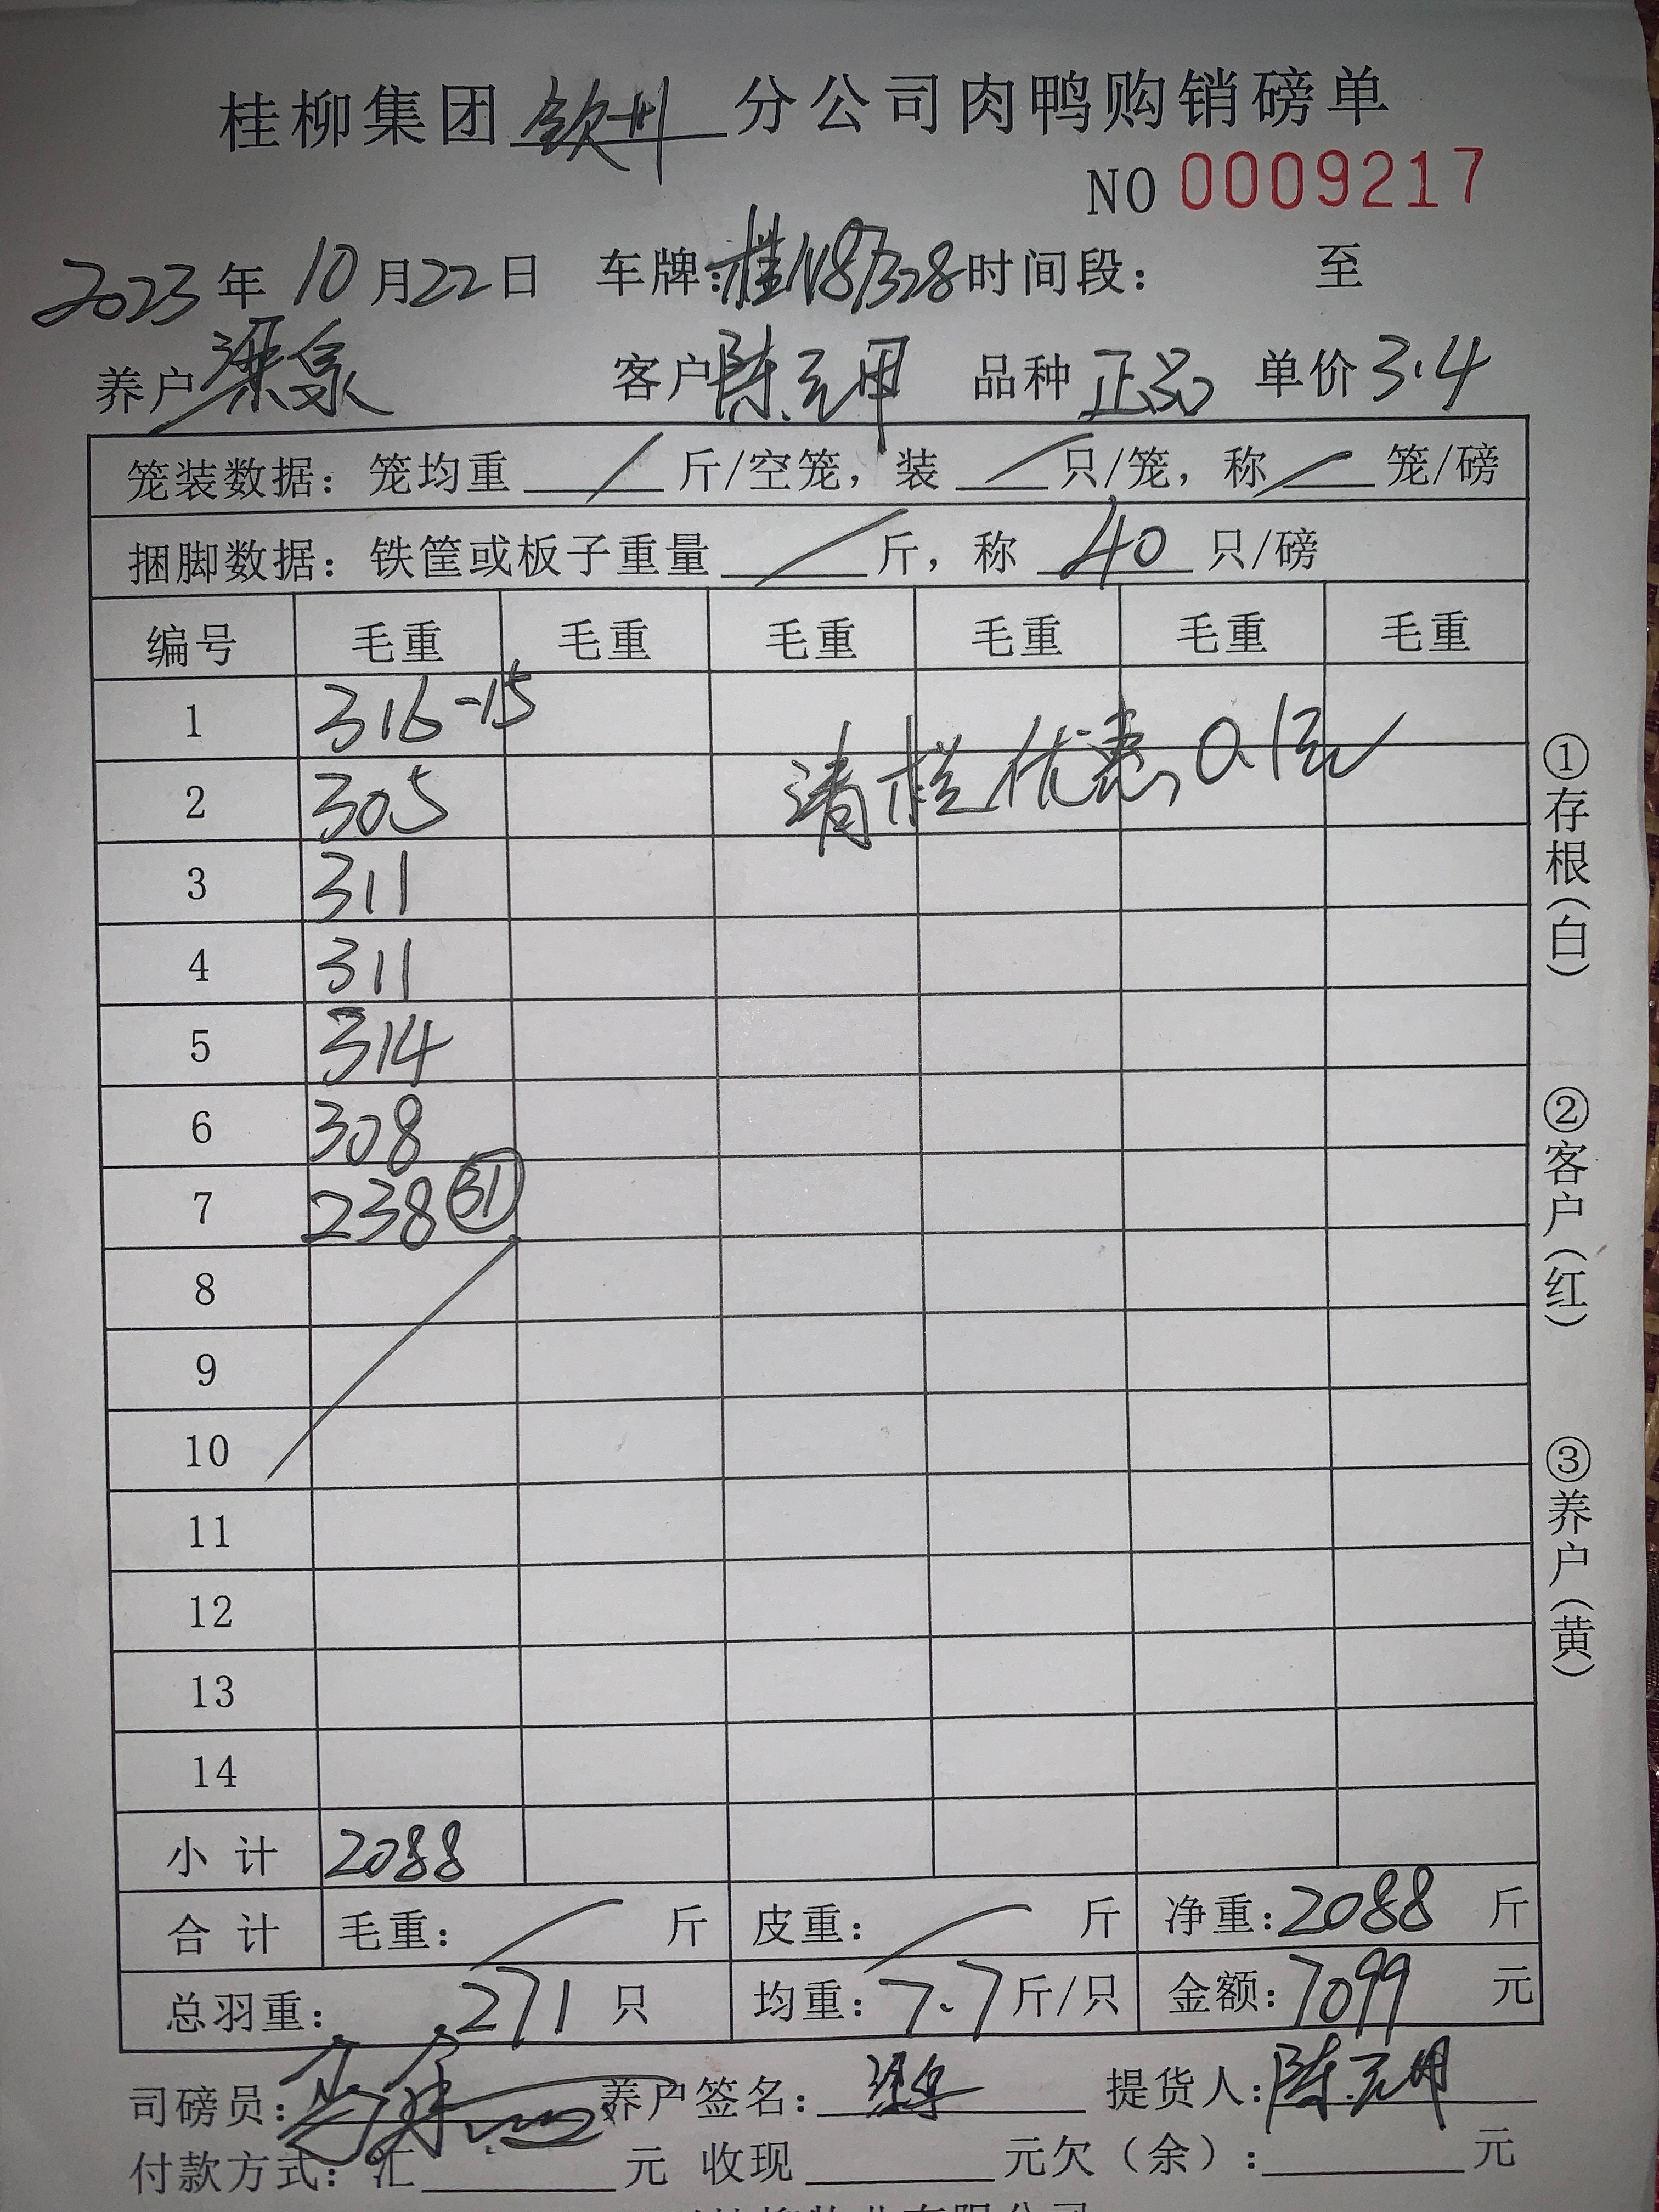 桂柳集团钦州分公司肉鸭购销磅单
NO 0009217
2023年10月22日 车牌:桂N87328时间段: 至
养户梁泉 客户陈元甲 品种正品 单价3.4
笼装数据:笼均重/斤/空笼,装/只/笼,称/笼/磅
捆脚数据:铁筐或板子重量/斤,称40只/磅
编号 毛重 毛重 毛重 毛重 毛重 毛重
1 316-15
清栏优惠0.1元
2 305
3 311
4 311
5 314
6 308
7 238 31
8
9
10
11
12
13
14
小计 2088
合计 毛重:/斤 皮重:/斤 净重:2088斤
总羽重:271只 均重:7.7斤/只 金额:7099元
司磅员: 养户签名: 提货人:陈元甲
付款方式:汇 元 收现 元欠(余): 元
①存根(白)
②客户(红)
③养户(黄)